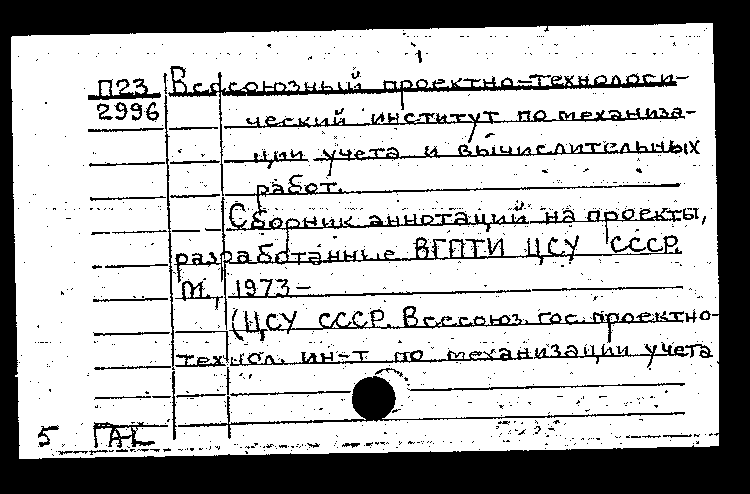 П23 Всесоюзный проектно-технологи-
2996 ческий институт по механиза-
ции учета и вычислительных
работ.
Сборник аннотаций на проекты,
разработанные ВГПТИ ЦСУ СССР.
М., 1973-
(ЦСУ СССР. Всесоюз. гос. проектно-
технол. ин-т по механизации учета
5 ГАК